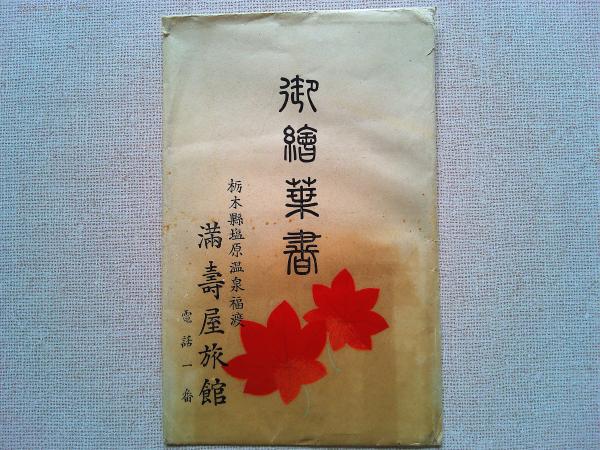 御繪葉書
栃木縣塩原温泉福渡
滿壽屋旅館
電話一番